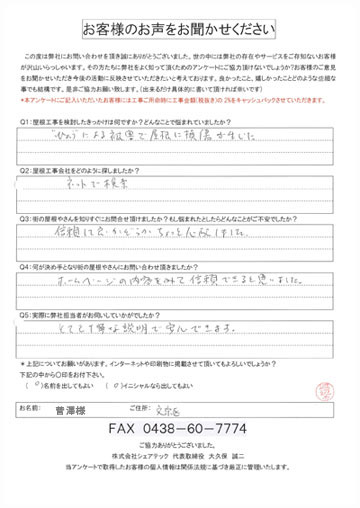 お客様のお声をお聞かせください
この度は弊社にお問い合わせを頂き誠にありがとうございます。世の中には弊社の存在やサービスをご存知ないお客様
が沢山いらっしゃいます。その方たちに弊社をよく知って頂くためのアンケートにご協力頂けないでしょうか?お客様のご意見
をお聞かせいただき今後の活動に反映させていただきたいと考えております。良かったこと、嬉しかったことどのような些細な
事でも結構です。是非ご協力お願い致します。(出来るだけ具体的に書いて頂ければ幸いです)
*本アンケートにご記入いただいたお客様には工事ご依頼時に工事金額(税抜き)の2%をキャッシュバックさせていただきます。
Q1:屋根工事を検討したきっかけは何ですか?どんなことで悩まれていましたか?
による被害で屋根に損傷が生じた
Q2:屋根工事会社をどのように探しましたか?
ネットで検索
Q3:街の屋根やさんを知りすぐにお問合せ頂けましたか?もし悩まれたとしたらどんなことがご不安でしたか?
信頼に足るかどうかちょっと心配でした。
Q4:何が決め手となり街の屋根やさんにお問い合わせ頂きましたか?
ホームページの内容をみて信頼できると思いました。
Q5:実際に弊社担当者がお伺いしていかがでしたか?
とても丁寧な説明で安心できます。
*上記についてお願いがあります。インターネットや印刷物に掲載させて頂いてもよろしいでしょうか?
下記の中から〇印をお付下さい。
(○)名前を出してもよい (○)イニシャルなら出してもよい
お名前: 曽澤様 ご住所: 文京区
FAX 0438-60-7774
ご協力ありがとうございました。
株式会社シェアテック 代表取締役 大久保 誠二
当アンケートで取得したお客様の個人情報は関係法規に基づき厳正に管理いたします。